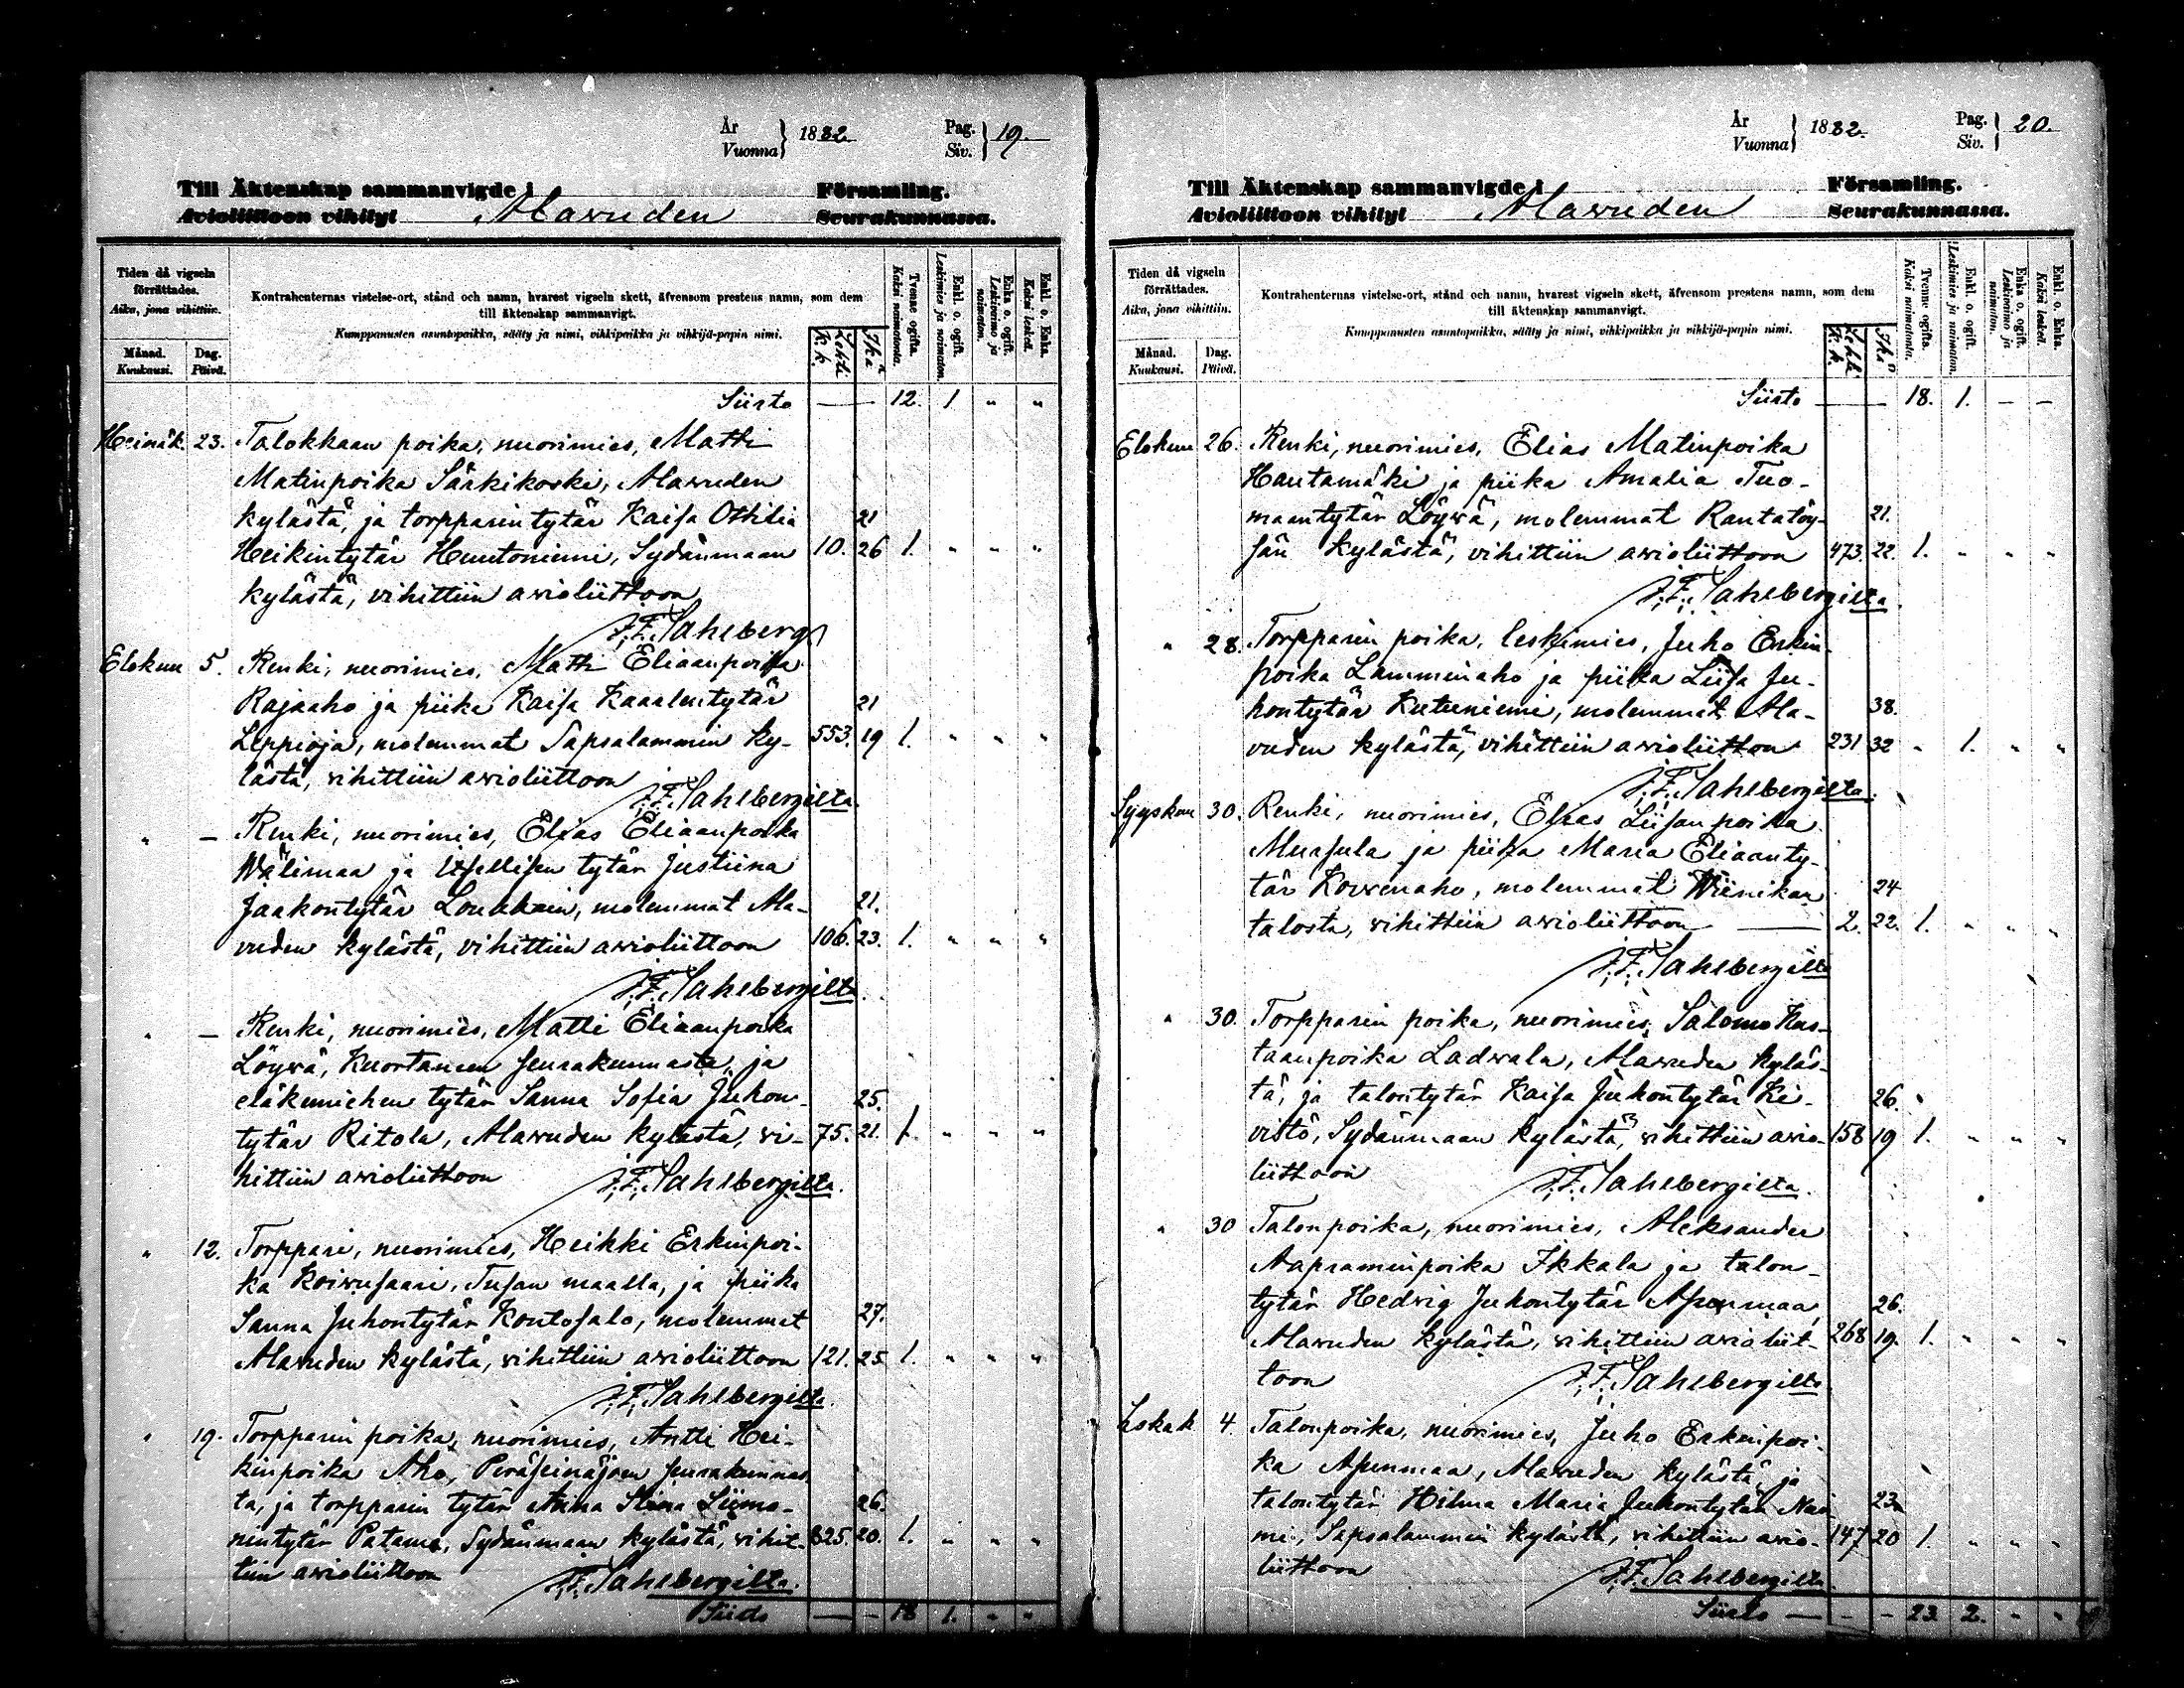 År
Vuonna } 1882.
Pag.
Siv. } 19.
Till Äktenskap sammanvigde i Församling.
Avioliittoon vihityt Alavuden Seurakunnassa.
Tiden då vigseln förrättades.
Aika, jona vihittiin.
Månad.
Kuukausi.
Dag.
Päivä.
Kontrahenternas vistelse-ort, stånd och namn, hvarest vigseln skett, äfvensom prestens namn, som dem
till äktenskap sammanvigt.
Kumppanusten asuntopaikka, sääty ja nimi, vihkipaikka ja vihkijä-papin nimi.
Lehti K. k.
Ikä
Tvenne ogifta.
Kaksi naimatonta.
Enkl. o. ogift.
Leskimies ja naimaton.
Enka o. ogift.
Leskivaimo ja naimaton.
Enkl. o. Enka.
Kaksi leskeä.
Siirto — 12. 1 " "
Heinäk. 23. Talokkaan poika, nuorimies, Matti
Matinpoika Särkikoski, Alavuden
kylästä, ja torpparin tytär Kaisa Othilia 21
Heikintytär Huutoniemi, Sydänmaan 10. 26 1. " " "
kylästä, vihittiin avioliittoon
J. F. Sahlberg
Elokuu 5. Renki, nuorimies, Matti Eliaanpoika
Rajaaho ja piika Kaisa Kaaalentytär 21
Leppioja, molemmat Sapsalammin ky- 553. 19 1. " " "
lästä, vihittiin avioliittoon
J. F. Sahlbergilta.
" — Renki, nuorimies, Elias Eliaanpoika
Wälimaa ja Itsellisen tytär Justiina
Jaakontytär Loukkain, molemmat Ala- 21.
vuden kylästä, vihittiin avioliittoon 106. 23. 1. " " "
J. F. Sahlbergilta.
" — Renki, nuorimies, Matti Eliaanpoika
Löywä, Kuortaneen seurakunnasta, ja
eläkemiehen tytär Sanna Sofia Juhon- 25.
tytär Ritola, Alavuden kylästä, vi- 75. 21. 1. " " "
hittiin avioliittoon J. F. Sahlbergilta.
" 12. Torppari, nuorimies, Heikki Erkinpoi-
ka Koivusaari, Tusan maalla, ja piika
Sanna Juhontytär Kontosalo, molemmat 27.
Alavuden kylästä, vihittiin avioliittoon 121. 25 1. " " "
J. F. Sahlbergilta.
" 19. Torpparin poika, nuorimies, Antti Hei-
kinpoika Aho, Peräseinäjoen seurakunnas
ta, ja torpparin tytär Anna Stina Siimo- 26.
nintytär Patama, Sydänmaan kylästä, vihit- 825. 20. 1. " " "
tiin avioliittoon J. F. Sahlbergilta.
Siirto — - 18 1. " "
År
Vuonna } 1882.
Pag.
Siv. } 20.
Till Äktenskap sammanvigde i Församling.
Avioliittoon vihityt Alavuden Seurakunnassa.
Tiden då vigseln förrättades.
Aika, jona vihittiin.
Månad.
Kuukausi.
Dag.
Päivä.
Kontrahenternas vistelse-ort, stånd och namn, hvarest vigseln skett, äfvensom prestens namn, som dem
till äktenskap sammanvigt.
Kumppanusten asuntopaikka, sääty ja nimi, vihkipaikka ja vihkijä-papin nimi.
Lehti K. k.
Ikä
Tvenne ogifta.
Kaksi naimatonta.
Enkl. o. ogift.
Leskimies ja naimaton.
Enka o. ogift.
Leskivaimo ja naimaton.
Enkl. o. Enka.
Kaksi leskeä.
Siirto — 18. 1. - -
Elokuu 26. Renki, nuorimies, Elias Matinpoika
Hautamäki ja piika Amalia Tuo-
maantytär Löywä, molemmat Rantatöy- 21.
sän kylästä, vihittiin avioliittoon 473. 22. 1. " " "
J. F. Sahlbergilta.
" 28. Torpparin poika, leskimies, Juho Erkin-
poika Lamminaho ja piika Liisa Ju-
hontytär Kutuniemi, molemmat Ala- 38.
vuden kylästä, vihittiin avioliittoon 231 32 " 1. " "
J. F. Sahlbergilta.
Syyskuu 30. Renki, nuorimies, Elias Liisanpoika
Mursula ja piika Maria Eliaanty-
tär Korvenaho, molemmat Wiinikan 24
talosta, vihittiin avioliittoon — 2. 22. 1. " " "
J. F. Sahlbergilta
" 30. Torpparin poika, nuorimies, Salomo Kus-
taanpoika Ladwala, Alavuden kyläs-
tä, ja talontytär Kaisa Juhontytär Ki- 26.
vistö, Sydänmaan kylästä, vihittiin avio- 158 19 1. " " "
liittoon J. F. Sahlbergilta.
" 30 Talonpoika, nuorimies, Aleksander
Aapraminpoika Ikkala ja talon-
tytär Hedvig Juhontytär Asunmaa, 26.
Alavuden kylästä, vihittiin avioliit- 268 19. 1. " " "
toon J. F. Sahlbergilta
Lokak 4. Talonpoika, nuorimies, Juho Erkinpoi-
ka Asunmaa, Alavuden kylästä, ja
talontytär Hilma Maria Juhontytär Nie 23
mi, Sapsalammin kylästä, vihittiin avio- 147 20 1. " " "
liittoon J. F. Sahlbergilta.
Siirto — - - 23. 2. " "